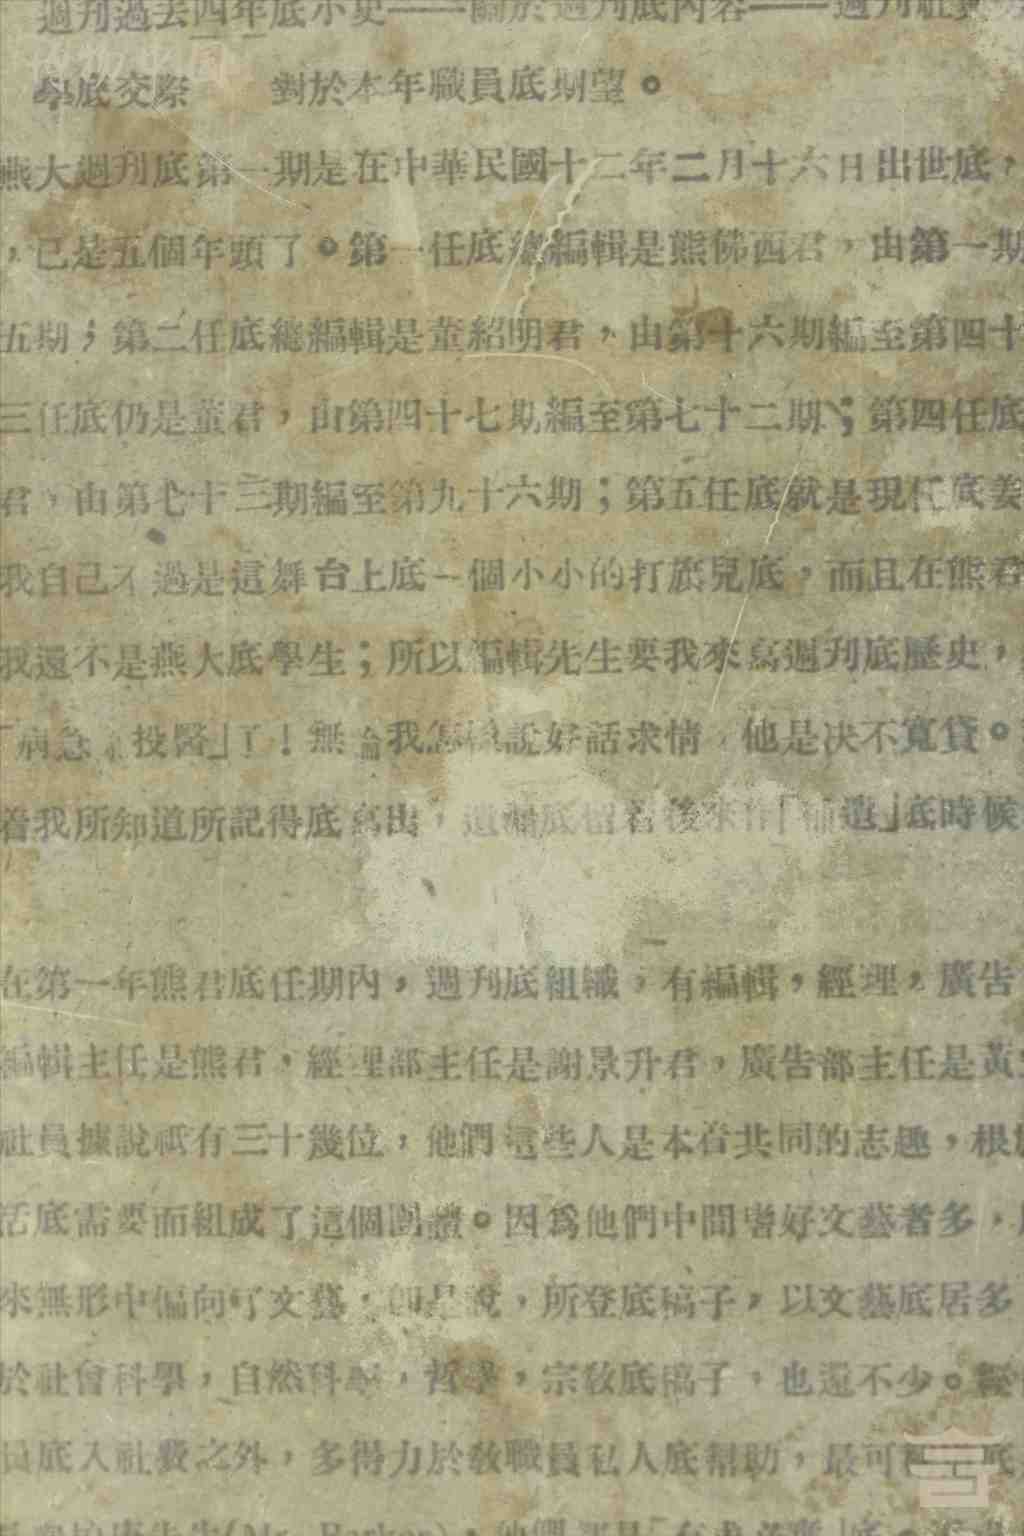 週刊過去四年底小史——關於週刊底內容——週刊社
學底交際　　對於本年職員底期望。
燕大週刊底第一期是在中華民國十二年二月十六日出世底，
，已是五個年頭了。第一任底總編輯是熊佛西君，由第一期
五期；第二任底總編輯是董紹明君，由第十六期編至第四十
三任底仍是董君，由第四十七期編至第七十二期；第四任底
君，由第七十三期編至第九十六期；第五任底就是現任底姜
我自己不過是這舞台上底一個小小的打旗兒底，而且在熊君
我還不是燕大底學生；所以編輯先生要我來寫週刊底歷史，
「病急 投醫」了！無論我怎樣說好話求情，他是决不寬貸。
着我所知道所記得底寫出，遺漏底留着後來作「補遺」底時候
在第一年熊君底任期內，週刊底組織，有編輯，經理，廣告
編輯主任是熊君，經理部主任是謝景升君，廣告部主任是黃
社員據說祇有三十幾位，他們這些人是本着共同的志趣，根
活底需要而組成了這個團體。因爲他們中間嗜好文藝者多，
來無形中偏向了文藝，即是說，所登底稿子，以文藝底居多
於社會科學，自然科學，哲學，宗敎底稿子，也還不少。經
員底入社費之外，多得力於敎職員私人底幫助，最可
先生(Mr. Barker)，他們